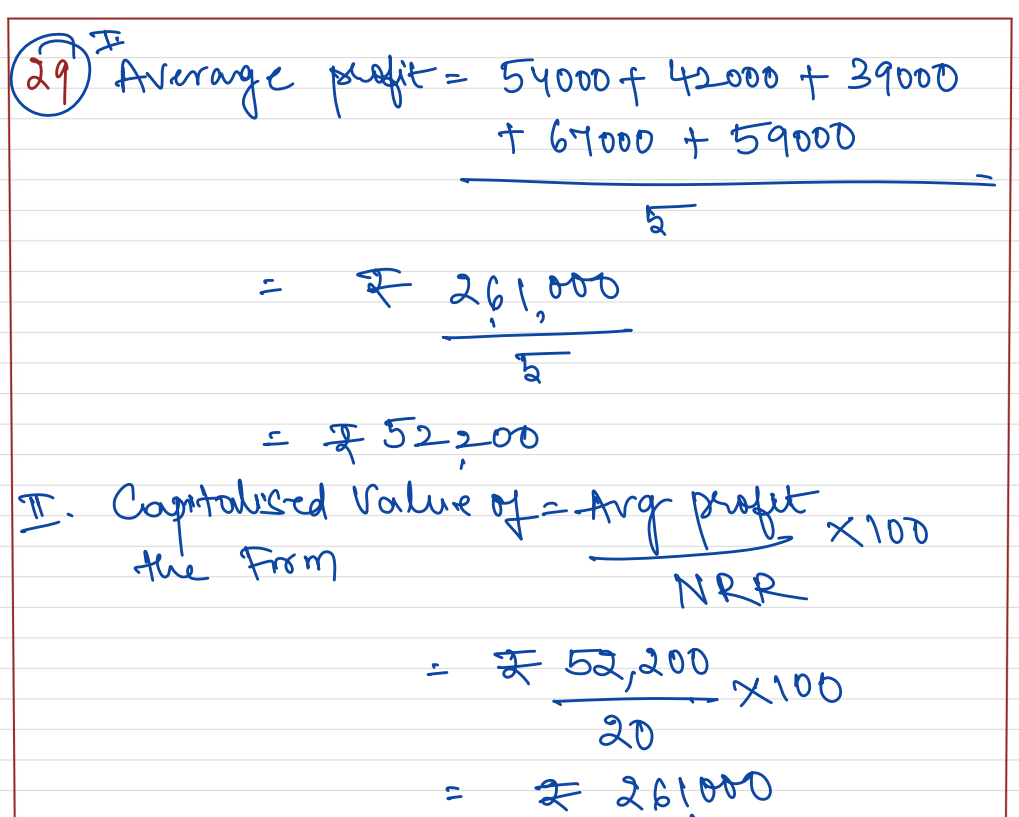 29 I Average profit = 54000 + 42000 + 39000
+ 67000 + 59000
5
= ₹ 261,000
5
= ₹ 52,200
II. Capitalised Value of = Avg profit × 100
the Firm
NRR
= ₹ 52,200 × 100
20
= ₹ 261,000